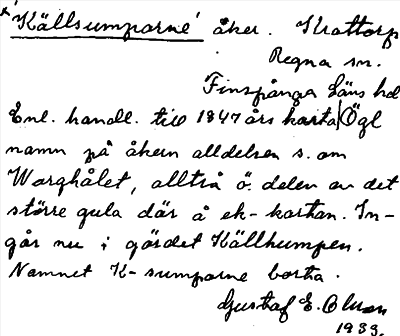 'Källsumparne' åker. Skattorp
Regna sn.
Finspånga läns hd
Enl. handl. till 1847 års karta Ögl
namn på åkern alldeles s. om
Warghålet, alltså ö. delen av det
större gula där å ek-kartan. In-
går nu i gärdet Källhumpen.
Namnet K-sumparne borta.
Gustaf E. Olsson
1933.